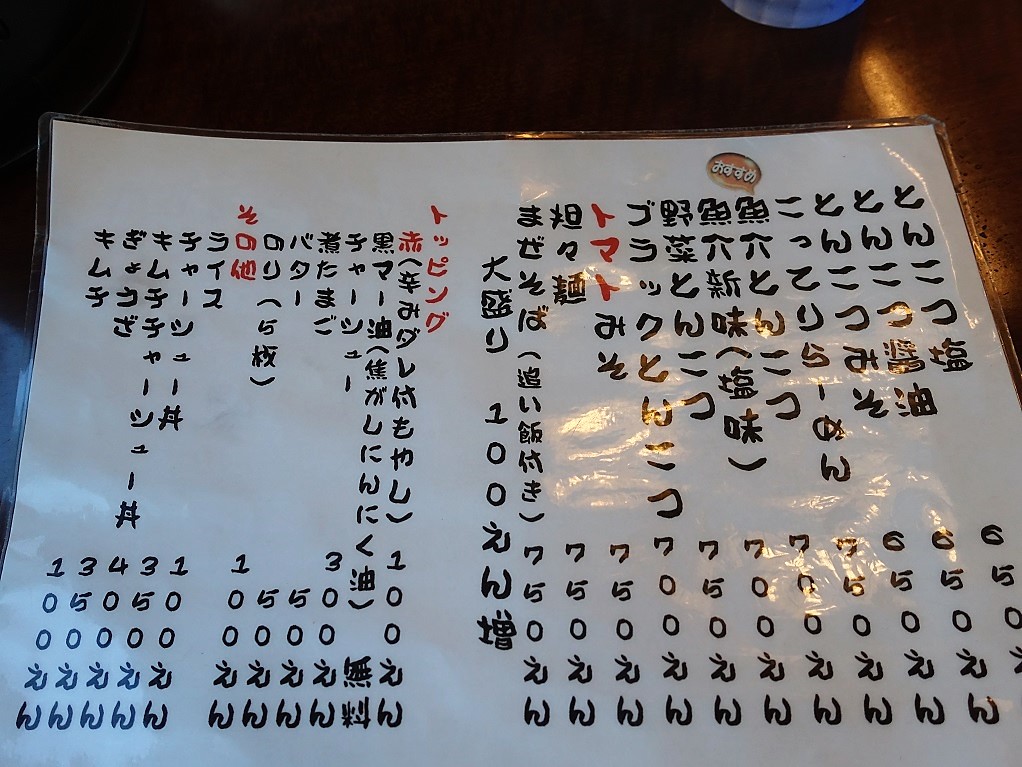 おすすめ
とんこつ塩 650えん
とんこつ醤油 650えん
とんこつみそ 650えん
こってりらーめん 750えん
魚介とんこつ 700えん
魚介新味（塩味） 700えん
野菜とんこつ 750えん
ブラックとんこつ 700えん
トマトみそ 750えん
担々麺 750えん
まぜそば（追い飯付き） 750えん
大盛り 100えん増
トッピング
赤（辛みダレ付もやし） 100えん
黒マー油（焦がしにんにく油） 無料
チャーシュー 300えん
煮たまご 50えん
バター 50えん
のり（5枚） 100えん
その他
ライス 100えん
チャーシュー丼 350えん
キムチチャーシュー丼 400えん
ぎょうざ 350えん
キムチ 100えん